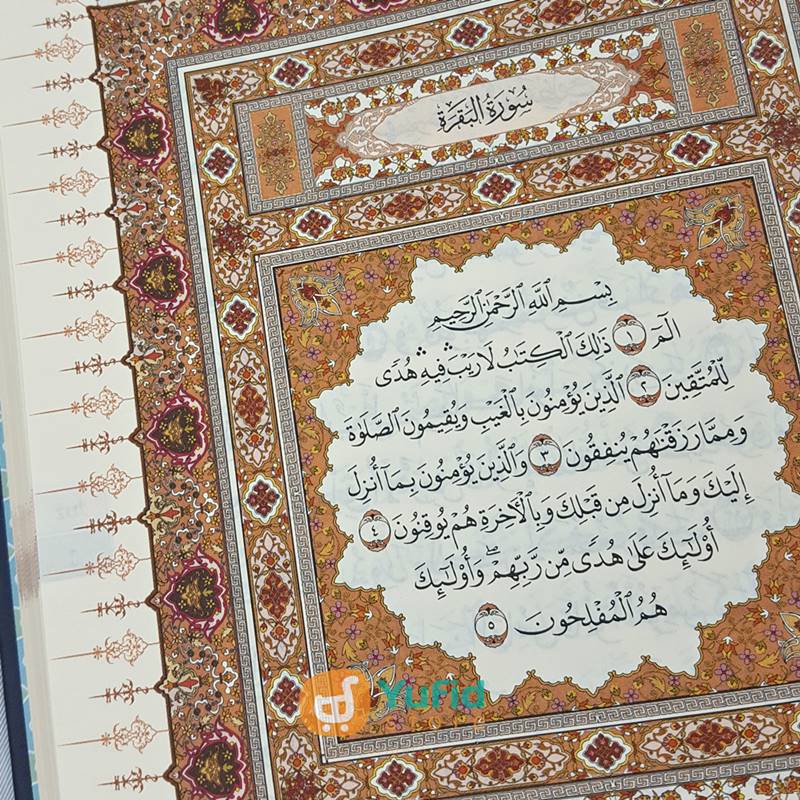 سُورَةُ البَقَرَةِ
بِسْمِ ٱللَّهِ ٱلرَّحْمَٰنِ ٱلرَّحِيمِ
الٓمٓ ١ ذَٰلِكَ ٱلْكِتَٰبُ لَا رَيْبَ ۛ فِيهِ ۛ هُدًى
لِّلْمُتَّقِينَ ٢ ٱلَّذِينَ يُؤْمِنُونَ بِٱلْغَيْبِ وَيُقِيمُونَ ٱلصَّلَوٰةَ
وَمِمَّا رَزَقْنَٰهُمْ يُنفِقُونَ ٣ وَٱلَّذِينَ يُؤْمِنُونَ بِمَآ أُنزِلَ
إِلَيْكَ وَمَآ أُنزِلَ مِن قَبْلِكَ وَبِٱلْءَاخِرَةِ هُمْ يُوقِنُونَ ٤
أُو۟لَٰٓئِكَ عَلَىٰ هُدًى مِّن رَّبِّهِمْ ۖ وَأُو۟لَٰٓئِكَ
هُمُ ٱلْمُفْلِحُونَ ٥
Yufid